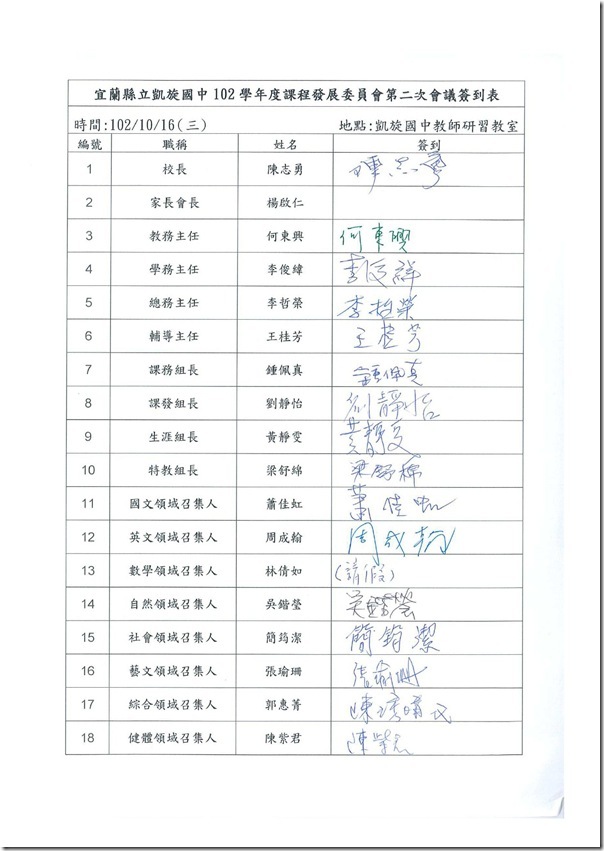 宜蘭縣立凱旋國中102學年度課程發展委員會第二次會議簽到表
時間:102/10/16(三) 地點:凱旋國中教師研習教室
編號 職稱 姓名 簽到
1 校長 陳志勇 陳志勇
2 家長會長 楊啟仁
3 教務主任 何東興 何東興
4 學務主任 李俊緯
5 總務主任 李哲榮 李哲榮
6 輔導主任 王桂芳 王桂芳
7 課務組長 鍾佩真 鍾佩真
8 課發組長 劉靜怡 劉靜怡
9 生涯組長 黃靜雯 黃靜文
10 特教組長 梁舒綿 梁舒綿
11 國文領域召集人 蕭佳虹 蕭佳虹
12 英文領域召集人 周成翰 周成翰
13 數學領域召集人 林倩如 (請假)
14 自然領域召集人 吳鍇瑩 吳鍇瑩
15 社會領域召集人 簡筠潔 簡筠潔
16 藝文領域召集人 張瑜珊 張瑜珊
17 綜合領域召集人 郭惠菁
18 健體領域召集人 陳紫君 陳紫君